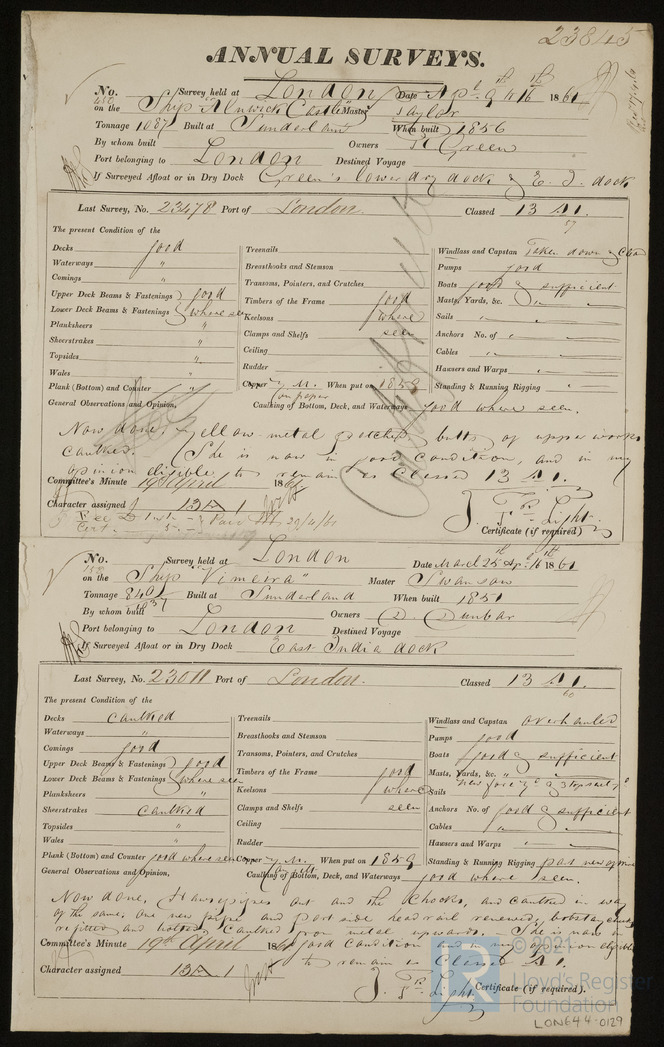 23845
ANNUAL SURVEYS.
No. Survey held at London Date Apl 9th & 16th 1861
on the Ship "Alnwick Castle" Master Taylor
Tonnage 1087 Built at Sunderland When built 1856
By whom built Owners Green
Port belonging to London Destined Voyage
If Surveyed Afloat or in Dry Dock Green's lower dry dock & E. I. dock
Last Survey, No. 23478 Port of London. Classed 13 A1.
57
The present Condition of the
Decks good
Waterways "
Comings "
Upper Deck Beams & Fastenings good
Lower Deck Beams & Fastenings where seen
Planksheers "
Sheerstrakes "
Topsides "
Wales "
Plank (Bottom) and Counter "
General Observations and Opinion,
Treenails
Breasthooks and Stemson
Transoms, Pointers, and Crutches
Timbers of the Frame good
Keelsons where
Clamps and Shelfs seen
Ceiling
Rudder
Copper Y. M. When put on 1859
on paper
Caulking of Bottom, Deck, and Waterways good where seen.
Windlass and Capstan Taken down &
Pumps good
Boats good & sufficient
Masts, Yards, &c. "
Sails "
Anchors No. of "
Cables "
Hawsers and Warps "
Standing & Running Rigging "
Now done, Yellow metal patched, butts of upper works
caulked. She is now in good condition, and in my
opinion eligible to remain as Classed 13 A1.
Committee's Minute 19th April 1861
Character assigned 13 A 1
J. Light.
Certificate (if required)
Paid 22/4/61
No. Survey held at London Date March 25th Apl 16th 1861
on the Ship "Vimeira" Master Swanson
Tonnage 840 Built at Sunderland When built 1851
1037
By whom built Owners D. Dunbar
Port belonging to London Destined Voyage
If Surveyed Afloat or in Dry Dock East India dock
Last Survey, No. 23011 Port of London. Classed 13 A1.
60
The present Condition of the
Decks caulked
Waterways "
Comings good
Upper Deck Beams & Fastenings good
Lower Deck Beams & Fastenings where seen
Planksheers "
Sheerstrakes caulked
Topsides "
Wales "
Plank (Bottom) and Counter good where seen
General Observations and Opinion,
Treenails
Breasthooks and Stemson
Transoms, Pointers, and Crutches
Timbers of the Frame good
Keelsons where
Clamps and Shelfs seen
Ceiling
Rudder
Copper Y. M. When put on 1859
on felt
Caulking of Bottom, Deck, and Waterways good where seen.
Windlass and Capstan overhauled
Pumps good
Boats good & sufficient
Masts, Yards, &c. "
Sails
Anchors No. of good & sufficient
Cables "
Hawsers and Warps "
Standing & Running Rigging part new
Now done, Hawsepipes out and the Chocks, and caulked in way
of the same, one new pipe and port side headrail renewed, bobstay
refitted and bolted, Caulked from metal upwards. She is now in
good condition and in my opinion eligible
to remain as Classed A1.
Committee's Minute 19th April 1861
Character assigned 13 A 1
J. Light.
Certificate (if required).
© 2021
Lloyd's Register
Foundation
LON644-0129